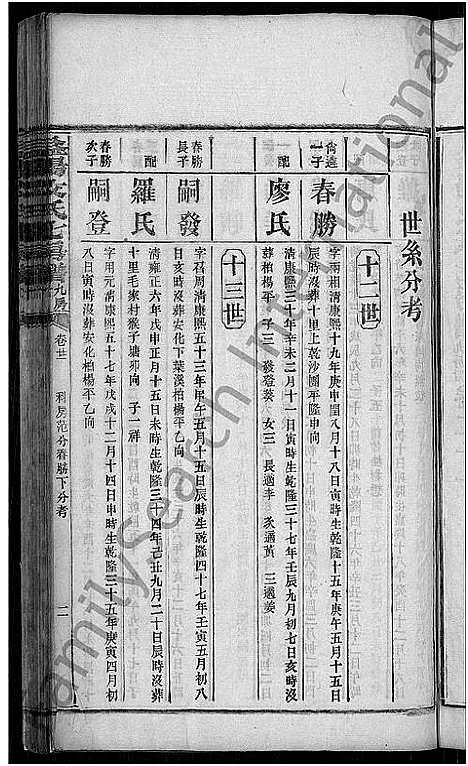 世系分考
十二世
尙達一子
春勝
字雨相清康熙十九年庚申閏八月十八日寅時生乾隆十五年庚午五月十五日
辰時沒葬十里上乾沙團平隆申向
配
廖氏
清康熙三十年辛未二月十一日寅時生乾隆三十七年壬辰九月初七日亥時沒
葬柏楊平 子三 發登葵 女三 長適李 次適黃 三適姜
十三世
春勝長子
嗣發
字召周清康熙五十三年甲午五月十五日辰時生乾隆四十七年壬寅五月初八
日亥時沒葬安化下葉溪柏楊平乙向
配
羅氏
清雍正六年戊申正月十五日未時生乾隆三十四年己丑九月二十日辰時沒葬
十里毛家村猴子塘卯向 子一祥
春勝次子
嗣登
字用元清康熙五十七年戊戌十二月十四日申時生乾隆三十五年庚寅四月初
八日寅時沒葬安化柏楊平乙向
卷廿二
科房范分春勝下分考
二
FamilySearch International